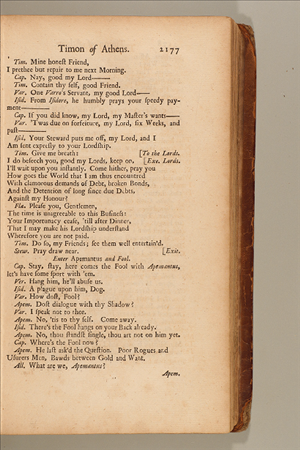 Timon of Athens. 2177
Tim. Mine honest Friend,
I prethee but repair to me next Morning.
Cap. Nay, good my Lord——
Tim. Contain thy self, good Friend.
Var. One Varro's Servant, my good Lord——
Isid. From Isidore, he humbly prays your speedy pay-
ment——
Cap. If you did know, my Lord, my Master's wants——
Var. 'Twas due on forfeiture, my Lord, six Weeks, and
past——
Isid. Your Steward puts me off, my Lord, and I
Am sent expresly to your Lordship.
Tim. Give me breath: [To the Lords.
I do beseech you, good my Lords, keep on, [Exe. Lords.
I'll wait upon you instantly. Come hither, pray you
How goes the World that I am thus encountred
With clamorous demands of Debt, broken Bonds,
And the Detention of long since due Debts,
Against my Honour?
Fla. Please you, Gentlemen,
The time is unagreeable to this Business:
Your Importunacy cease, 'till after Dinner,
That I may make his Lordship understand
Wherefore you are not paid.
Tim. Do so, my Friends; see them well entertain'd.
Stew. Pray draw near. [Exit.
Enter Apemantus and Fool.
Cap. Stay, stay, here comes the Fool with Apemantus,
let's have some sport with 'em.
Var. Hang him, he'll abuse us.
Isid. A plague upon him, Dog.
Var. How dost, Fool?
Apem. Dost dialogue with thy Shadow?
Var. I speak not to thee.
Apem. No, 'tis to thy self. Come away.
Isid. There's the Fool hangs on your Back already.
Apem. No, thou standst single, thou art not on him yet.
Cap. Where's the Fool now?
Apem. He last ask'd the Question. Poor Rogues and
Usurers Men, Bawds between Gold and Want.
All. What are we, Apemantus?
Apem.